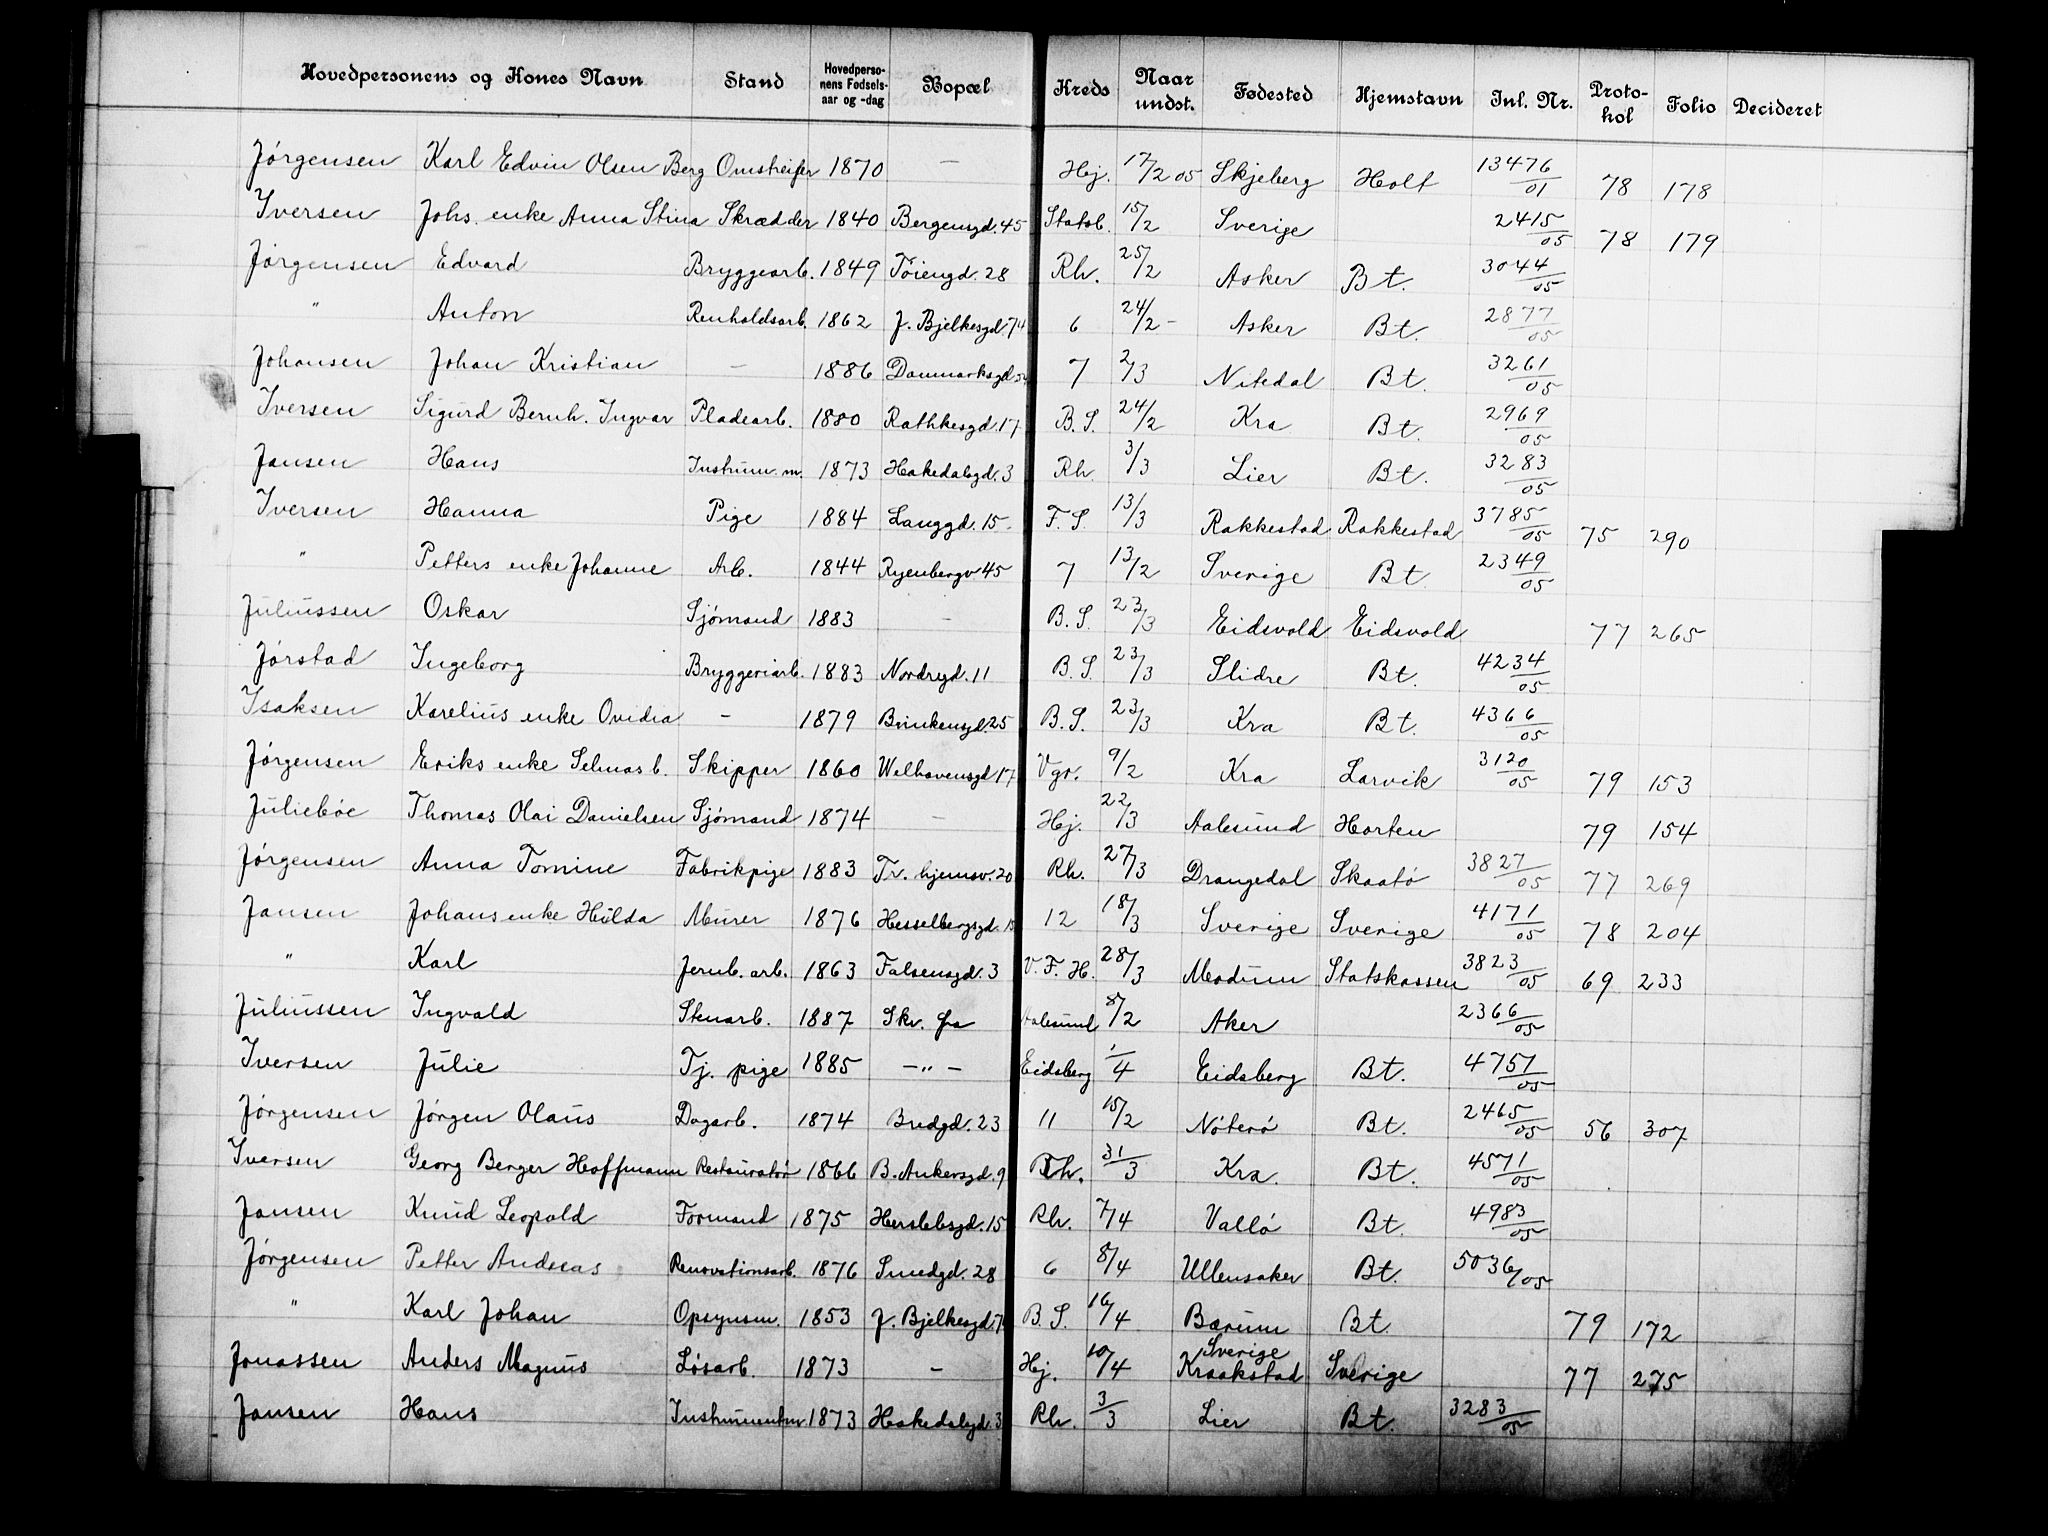 Hovedpersonens og Kones Navn Stand Hovedpersonens Fødselsaar og -dag Bopæl Kreds Naar undst. Fødested Hjemstavn Inl. Nr. Protokol Folio Decideret
Jørgensen Karl Edvin Olsen Berg Omstreifer 1870 — Hej. 17/2 05 Skjeberg Holt 13476/01 78 178
Iversen Johs. enke Anna Stina Skrædder 1840 Bergensgd. 45 Statsb. 15/2 Sverige 2415/05 78 179
Jørgensen Edvard Bryggearb. 1849 Tøiengd. 28 Rh. 25/2 Asker Bt. 3044/05
" Anton Renholdsarb. 1862 J. Bjelkesgd. 74 6 24/2 - Asker Bt. 2877/05
Johansen Johan Kristian — 1886 Danmarksgd. 7 2/3 Nitedal Bt. 3261/05
Iversen Sigurd Bernh. Ingvar Pladearb. 1880 Rathkesgd. 17 B. S. 24/2 Kra Bt. 2969/05
Jansen Hans Instrum. m. 1873 Hakedalsgd. 3 Rh. 3/3 Lier Bt. 3283/05
Iversen Hanna Pige 1884 Langgd. 15. F. S. 13/3 Rakkestad Rakkestad 3785/05 75 290
" Petters enke Johanne Arb. 1844 Ryenbergv 45 7 13/2 Sverige Bt. 2349/05
Juliussen Oskar Sjømand 1883 — B. S. 23/3 Eidsvold Eidsvold 77 265
Jørstad Ingeborg Bryggeriarb. 1883 Nordregd. 11 B. S. 23/3 Slidre Bt. 4234/05
Isaksen Karelius enke Ovidia — 1879 Brinkensgd. 25 B. S. 23/3 Kra Bt. 4366/05
Jørgensen Eriks enke Selmas b. Skipper 1860 Welhavensgd 17 Vgr. 9/2 Kra Larvik 3120/05 79 153
Juliebøe Thomas Olai Danielsen Sjømand 1874 — Hej. 22/3 Aalesund Horten 79 154
Jørgensen Anna Tomine Fabrikpige 1883 Tr. hjemsv. 20 Rh. 27/3 Drangedal Skaatø 3827/05 77 269
Jansen Johans enke Hilda Murer 1876 Hesselbergsgd. 12 18/3 Sverige Sverige 4171/05 78 204
" Karl Jernb. arb. 1863 Falsensgd. 3 V. F. H. 28/3 Modum Statskassen 3823/05 69 233
Juliussen Ingvald Stenarb. 1887 Skr. fra Aalesund 8/2 Aker 2366/05
Iversen Julie Tj. pige 1885 — " — Eidsberg 1/4 Eidsberg Bt. 4757/05
Jørgensen Jørgen Olaus Dagarb. 1874 Bredgd. 23 11 15/2 Nøterø Bt. 2465/05 56 307
Iversen Georg Berger Hoffmann Restauratør 1866 B. Ankersgd. 9 Rh. 31/3 Kra. Bt. 4571/05
Jansen Knud Leopold Formand 1875 Herslebsgd. 15 Rh. 7/4 Vallø Bt. 4983/05
Jørgensen Petter Andreas Renovationsarb. 1876 Smedgd. 28 6 8/4 Ullensaker Bt. 5036/05
" Karl Johan Opsynsm. 1853 J. Bjelkesgd. B. S. 16/4 Bærum Bt. 79 172
Jonassen Anders Magnus Løsarb. 1873 — Hej. 10/4 Sverige Kraakstad Sverige 77 275
Jansen Hans Instrumentm. 1873 Hakedalsgd. 3 Rh. 3/3 Lier Bt. 3283/05